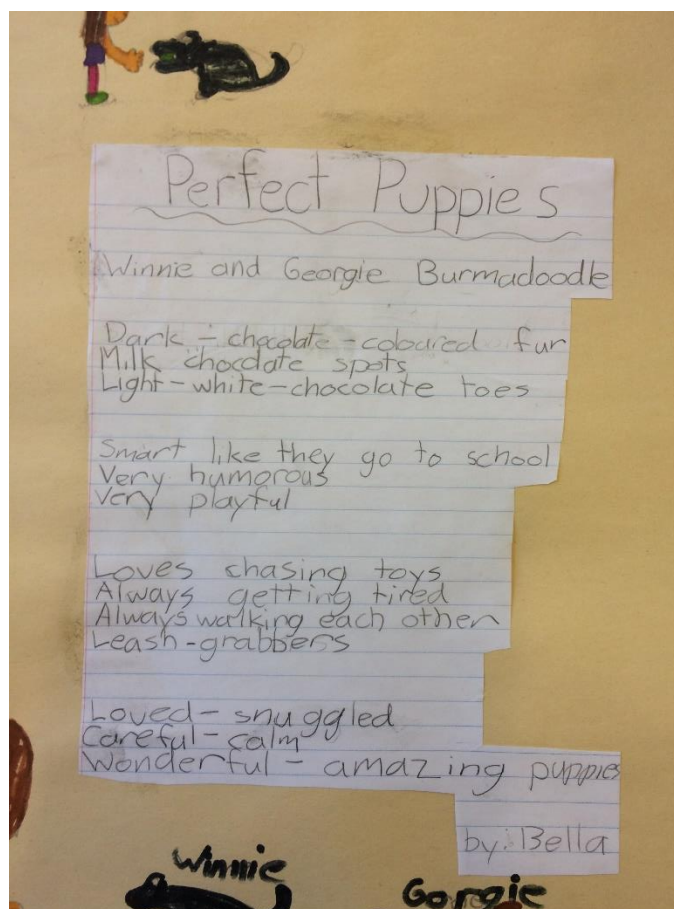 Perfect Puppies
Winnie and Georgie Burmadoodle
Dark - chocolate - coloured fur
Milk chocolate spots
Light - white - chocolate toes
Smart like they go to school
Very humorous
Very playful
Loves chasing toys
Always getting tired
Always walking each other
Leash - grabbers
Loved - snuggled
Careful - calm
Wonderful - amazing puppies
by: Bella
Winnie
Gorgie